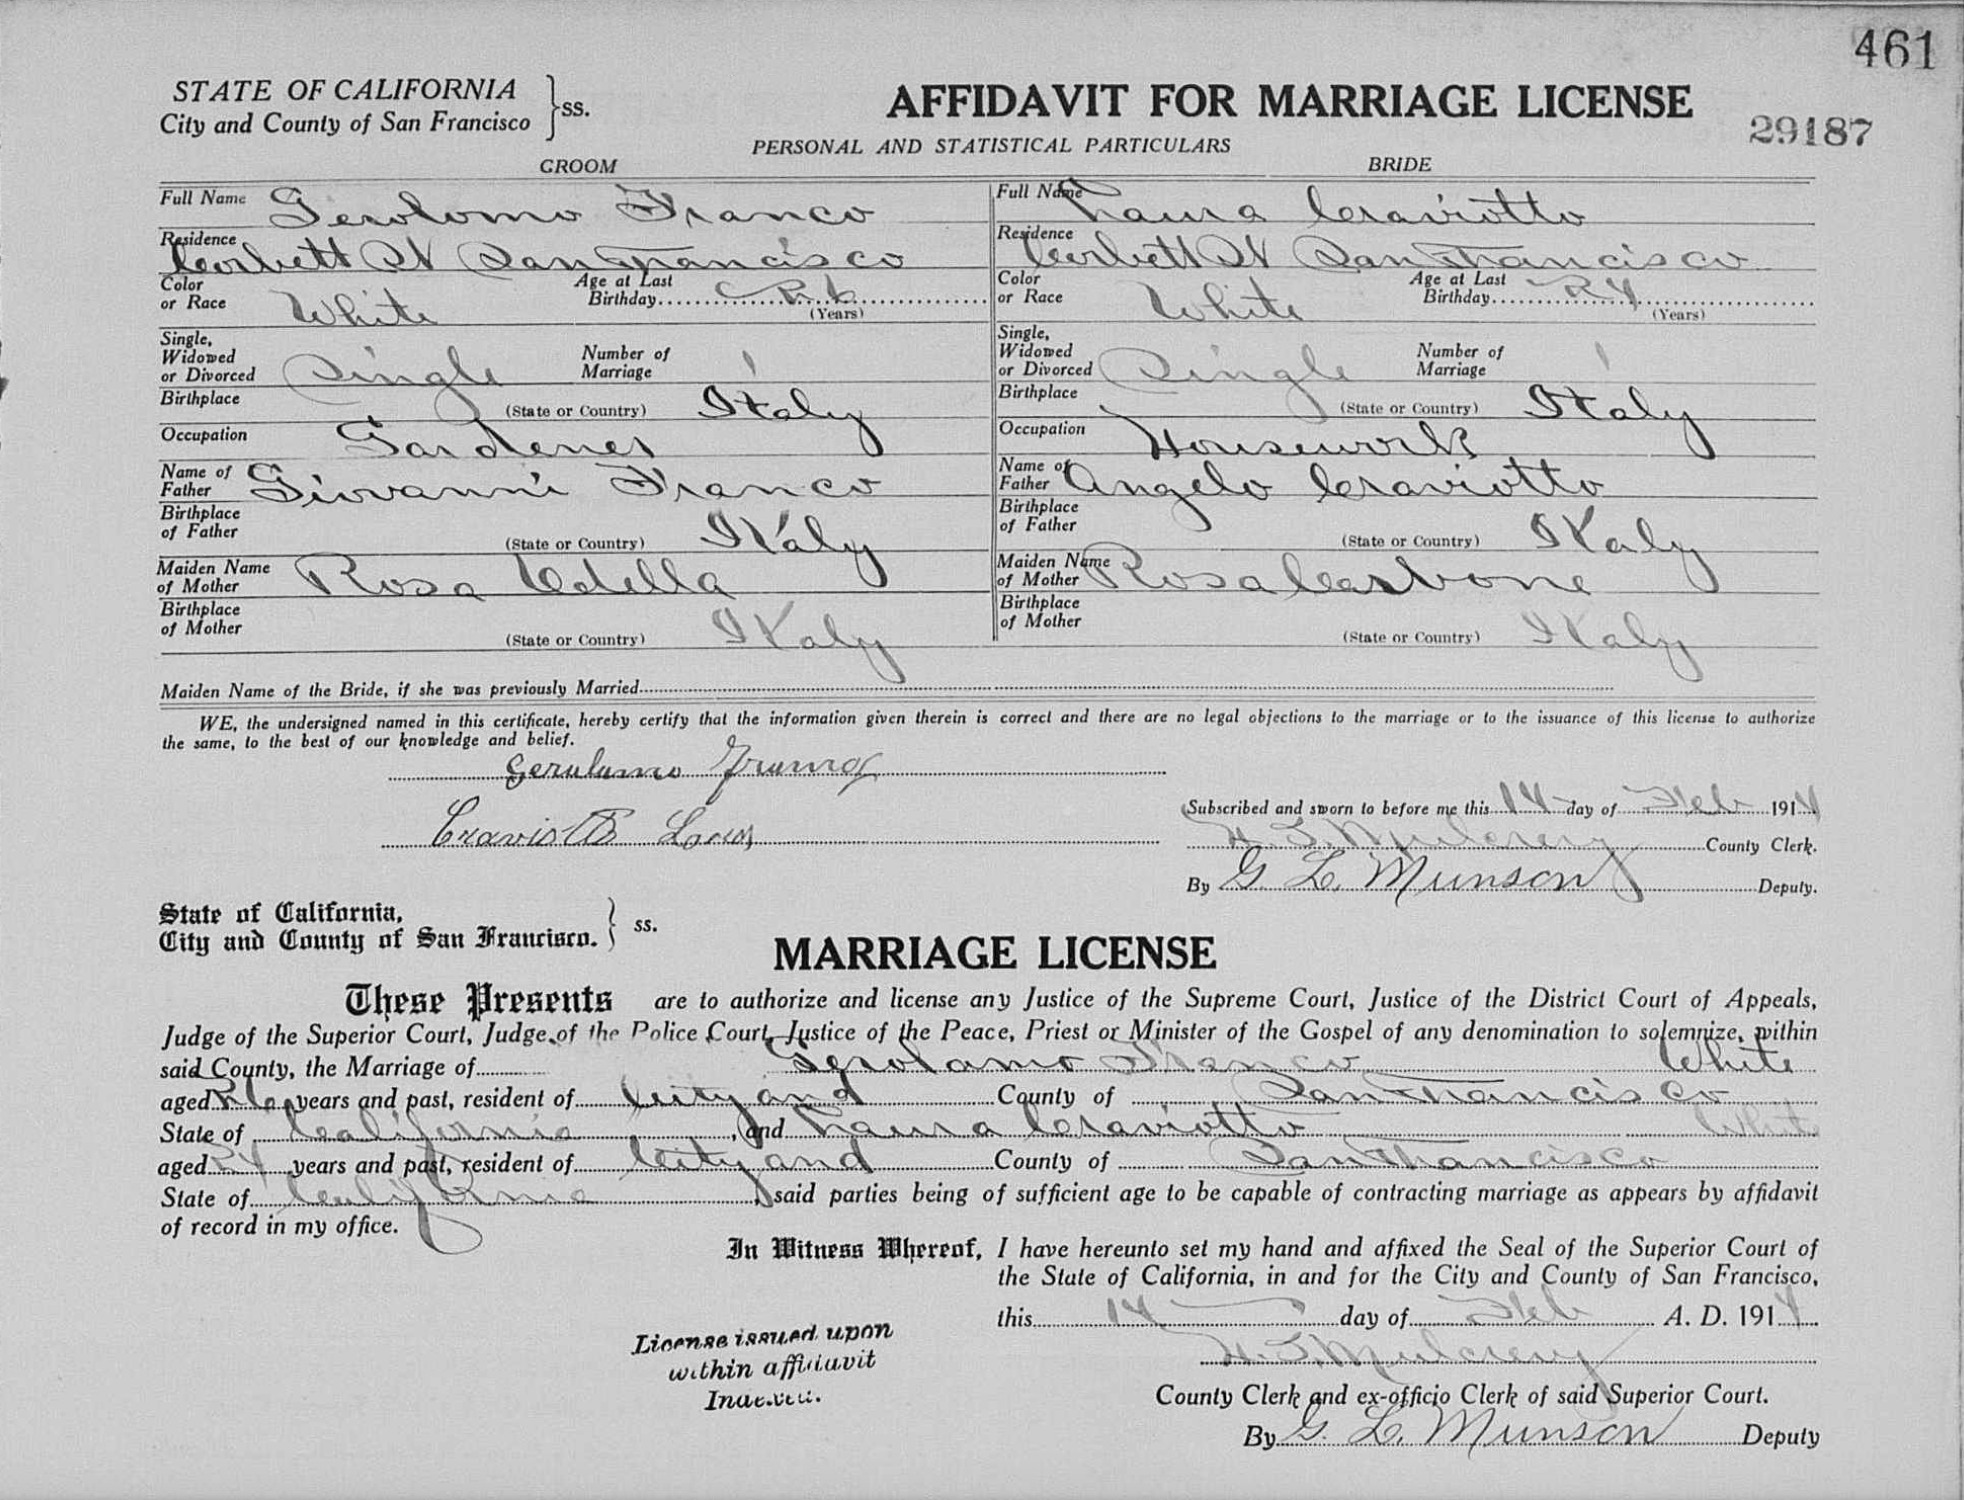 461
STATE OF CALIFORNIA
City and County of San Francisco } ss.
AFFIDAVIT FOR MARRIAGE LICENSE
29187
PERSONAL AND STATISTICAL PARTICULARS
GROOM
Full Name Gerolomo Franco
Residence Corbett St San Francisco
Color or Race White Age at Last Birthday 26 (Years)
Single, Widowed or Divorced Single Number of Marriage 1
Birthplace (State or Country) Italy
Occupation Gardener
Name of Father Giovanni Franco
Birthplace of Father (State or Country) Italy
Maiden Name of Mother Rosa
Birthplace of Mother (State or Country) Italy
BRIDE
Full Name Laura Craviotto
Residence Corbett St San Francisco
Color or Race White Age at Last Birthday 24 (Years)
Single, Widowed or Divorced Single Number of Marriage 1
Birthplace (State or Country) Italy
Occupation Housework
Name of Father Angelo Craviotto
Birthplace of Father (State or Country) Italy
Maiden Name of Mother Rosa Carbone
Birthplace of Mother (State or Country) Italy
Maiden Name of the Bride, if she was previously Married
WE, the undersigned named in this certificate, hereby certify that the information given therein is correct and there are no legal objections to the marriage or to the issuance of this license to authorize
the same, to the best of our knowledge and belief.
Gerolamo
Craviotto
Subscribed and sworn to before me this 14 day of Feb 1914
H. I. Mulcrevy County Clerk.
By G. L. Munson Deputy.
State of California,
City and County of San Francisco. } ss.
MARRIAGE LICENSE
These Presents are to authorize and license any Justice of the Supreme Court, Justice of the District Court of Appeals,
Judge of the Superior Court, Judge of the Police Court, Justice of the Peace, Priest or Minister of the Gospel of any denomination to solemnize, within
said County, the Marriage of Gerolamo Franco White
aged 26 years and past, resident of City and County of San Francisco
State of California, and Laura Craviotto White
aged 24 years and past, resident of City and County of San Francisco
State of California, said parties being of sufficient age to be capable of contracting marriage as appears by affidavit
of record in my office.
In Witness Whereof, I have hereunto set my hand and affixed the Seal of the Superior Court of
the State of California, in and for the City and County of San Francisco,
this 14 day of Feb A. D. 1914.
H. I. Mulcrevy
County Clerk and ex-officio Clerk of said Superior Court.
By G. L. Munson Deputy
License issued upon
within affidavit
Indexed.